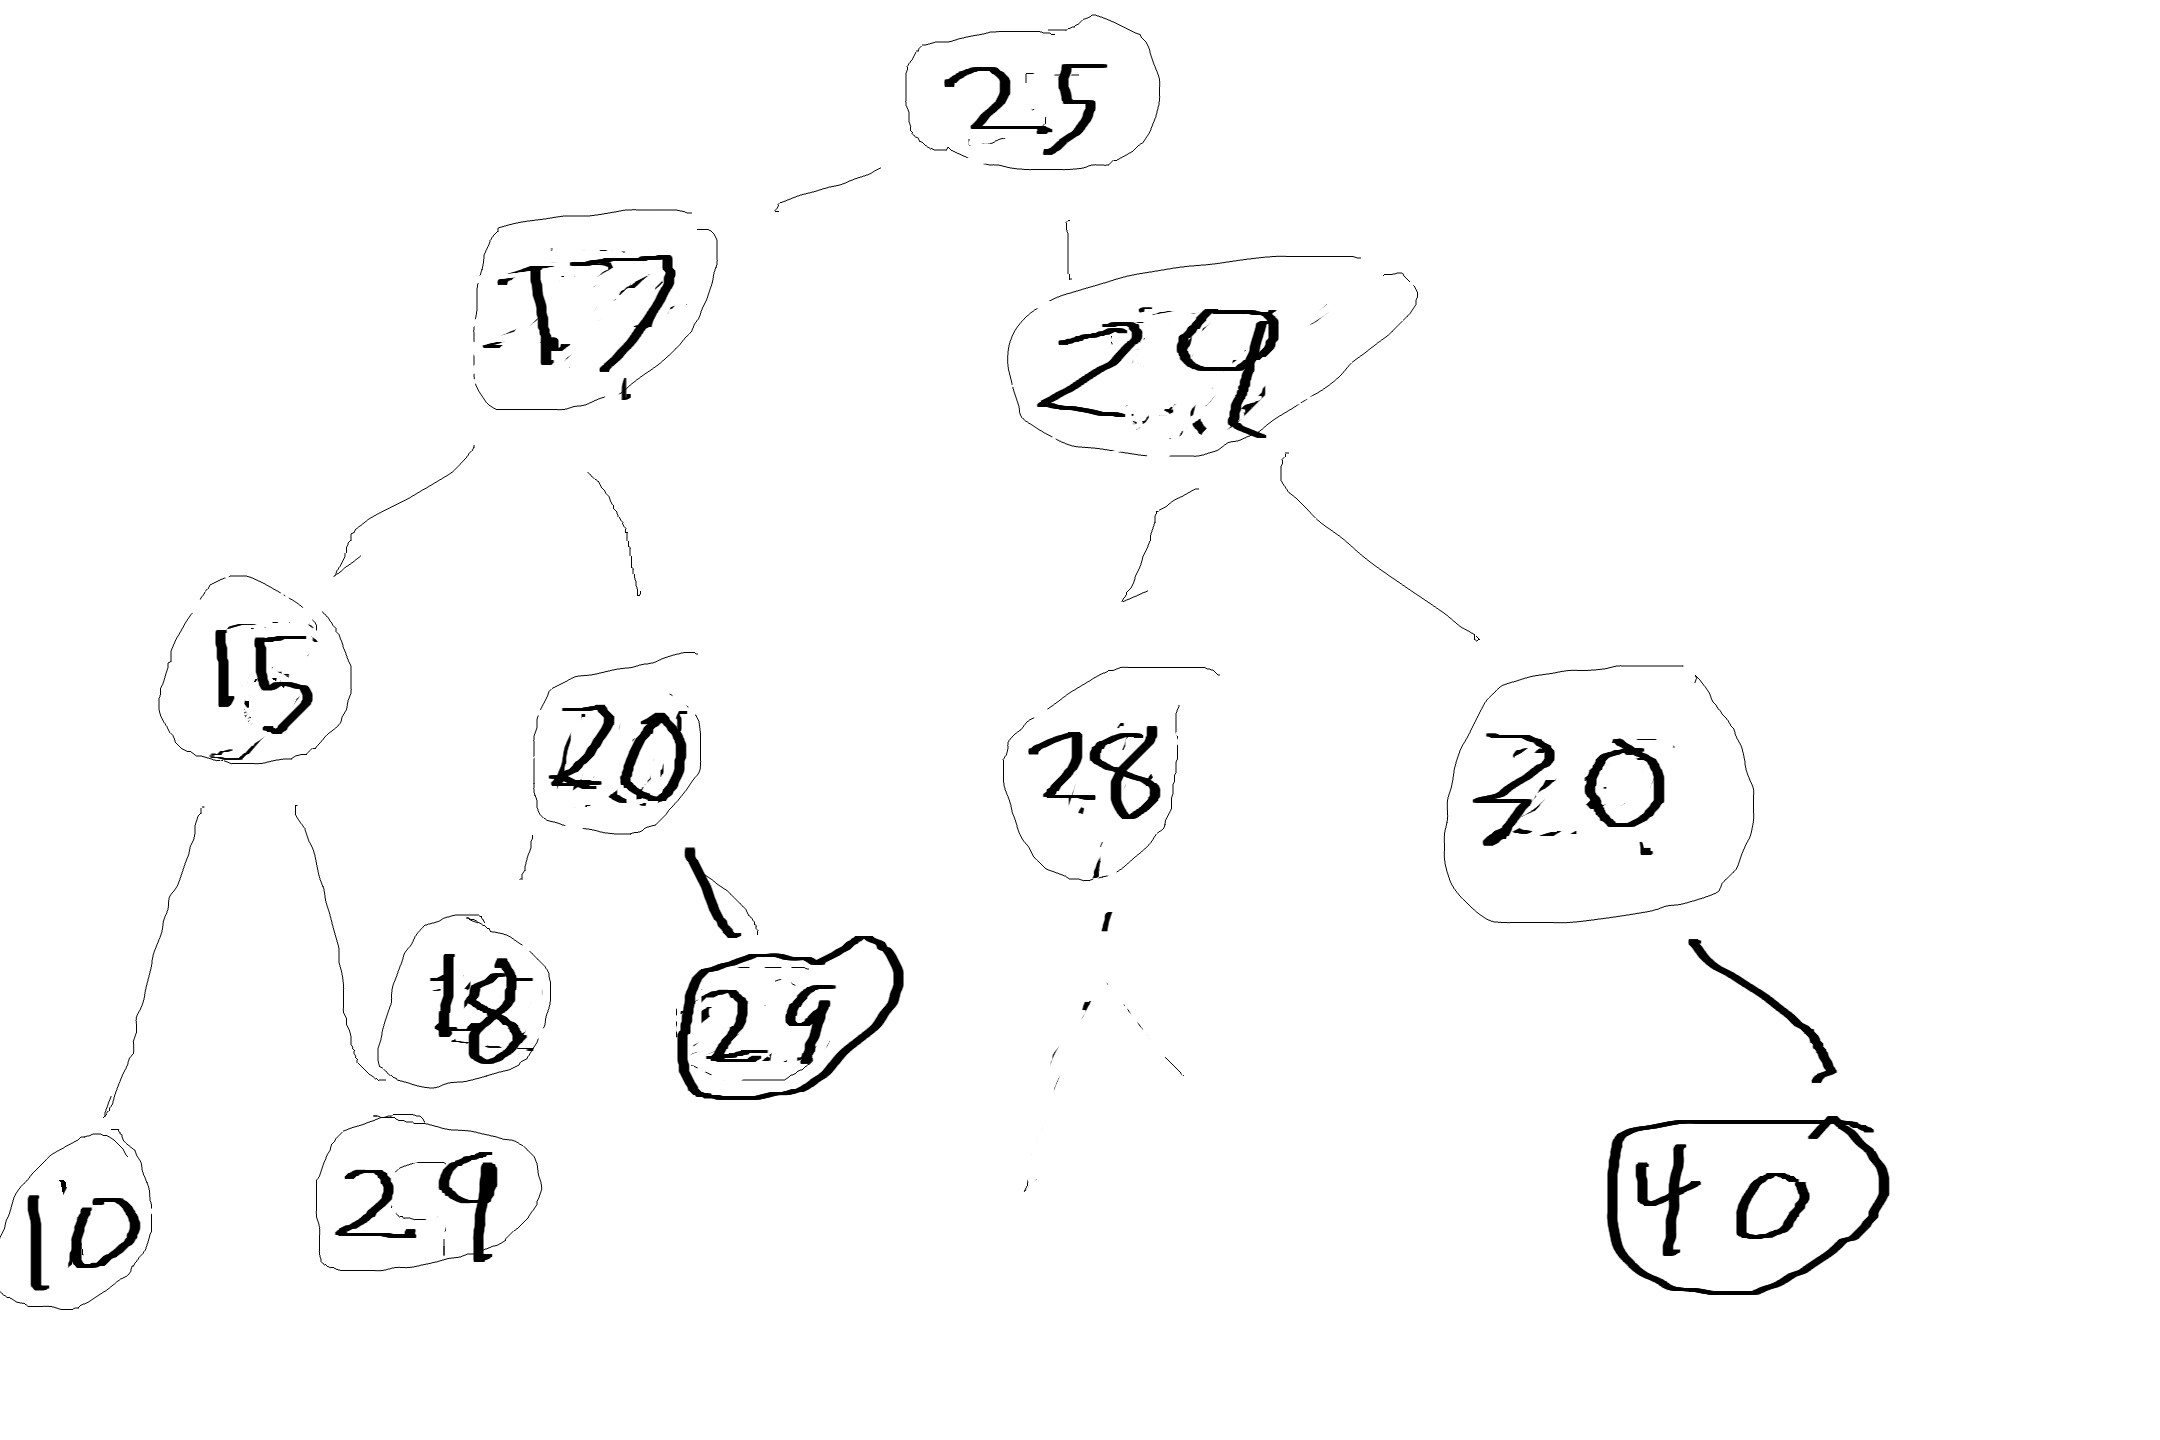 25
17 29
15 20 28 30
18 29
10 29 40